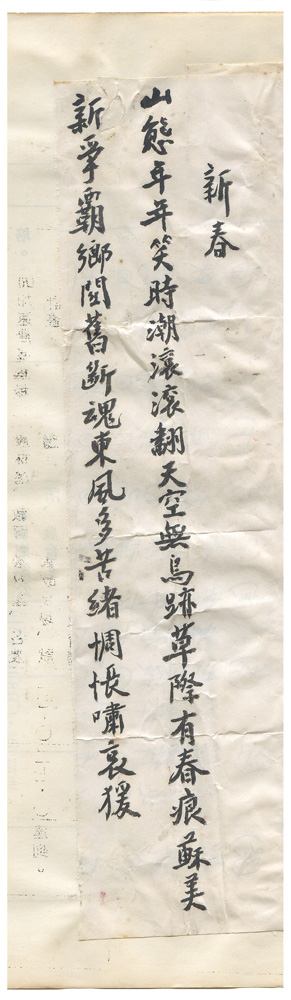 新春
山態年年笑時潮滾滾翻天空無鳥跡草際有春痕蘇美
新爭霸鄉閭舊斷魂東風多苦緒惆悵嘯哀猨